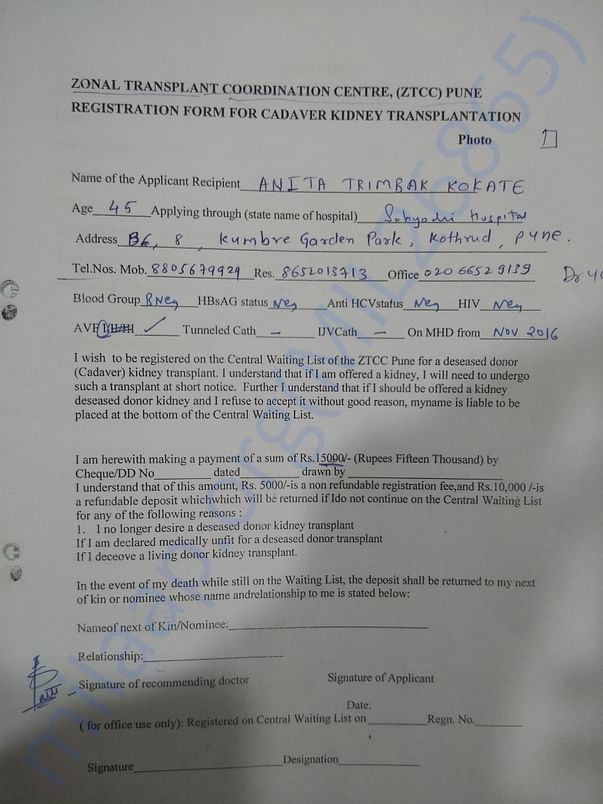 ZONAL TRANSPLANT COORDINATION CENTRE, (ZTCC) PUNE
REGISTRATION FORM FOR CADAVER KIDNEY TRANSPLANTATION
Photo
Name of the Applicant Recipient ANITA TRIMBAK KOKATE
Age 45 Applying through (state name of hospital) Sahyadri Hospital
Address B6, 8, Kumbre Garden Park, Kothrud, Pune.
Tel.Nos. Mob. 8805679929 Res. 8652013713 Office 020 6652 9139 Dr
Blood Group BNeg HBsAG status Neg Anti HCVstatus Neg HIV Neg
AVF Tunneled Cath – IJVCath – On MHD from Nov 2016
I wish to be registered on the Central Waiting List of the ZTCC Pune for a deseased donor
(Cadaver) kidney transplant. I understand that if I am offered a kidney, I will need to undergo
such a transplant at short notice. Further I understand that if I should be offered a kidney
deseased donor kidney and I refuse to accept it without good reason, myname is liable to be
placed at the bottom of the Central Waiting List.
I am herewith making a payment of a sum of Rs.15000/- (Rupees Fifteen Thousand) by
Cheque/DD No dated drawn by
I understand that of this amount, Rs. 5000/-is a non refundable registration fee,and Rs.10,000 /-is
a refundable deposit whichwhich will be returned if Ido not continue on the Central Waiting List
for any of the following reasons :
1. I no longer desire a deseased donor kidney transplant
If I am declared medically unfit for a deseased donor transplant
If I deceove a living donor kidney transplant.
In the event of my death while still on the Waiting List, the deposit shall be returned to my next
of kin or nominee whose name andrelationship to me is stated below:
Nameof next of Kin/Nominee:
Relationship:
Signature of recommending doctor Signature of Applicant
Date:
( for office use only): Registered on Central Waiting List on Regn. No.
Signature Designation